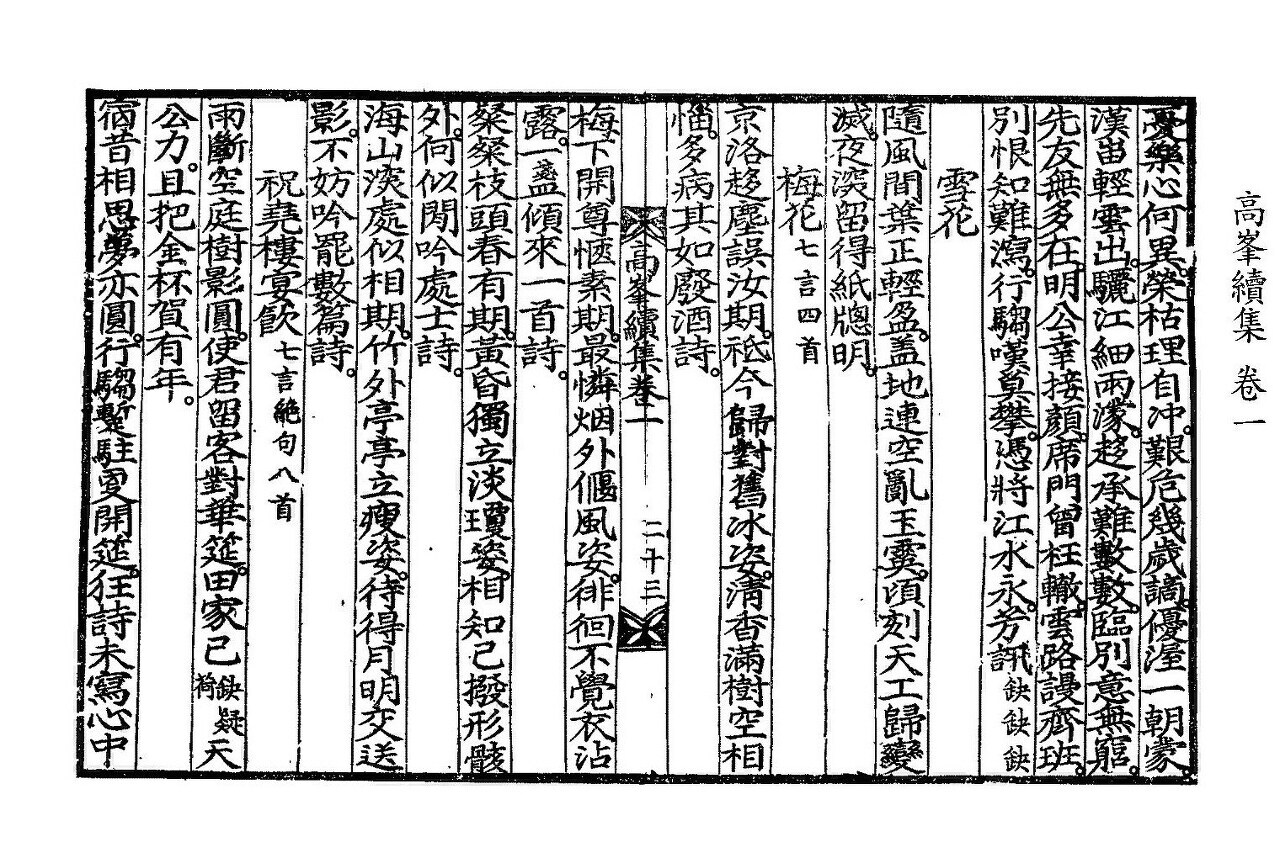 高峯續集 卷一
憂樂心何異榮枯理自冲艱危幾歲謫優渥一朝蒙
漢畄輕雲出驪江細雨濛趍承難數數臨別意無窮
先友無多在明公幸接顏席門曾枉轍雲路謾齊班
別恨知難瀉行騶嘆莫攀憑將江水永芳訊缺缺缺
雪花
隨風間葉正輕盈蓋地連空亂玉霙頃刻天工歸變
滅夜深留得紙牕明
梅花七言四首
京洛趍塵誤汝期祗今歸對舊冰姿淸香滿樹空相
惱多病其如廢酒詩
高峯續集卷一 二十三
梅下開尊愜素期最憐烟外偃風姿徘徊不覺衣沾
露一盞傾來一首詩
粲粲枝頭春有期黃昏獨立淡瓊姿相知已撥形骸
外何似閒吟處士詩
海山深處似相期竹外亭亭立瘦姿待得月明交送
影不妨吟罷數篇詩
祝堯樓宴飮七言絶句八首
雨斷空庭樹影圓使君留客對華筵田家已缺疑荷天
公力且把金杯賀有年
宿昔相思夢亦圓行騶蹔駐更開筵狂詩未寫心中